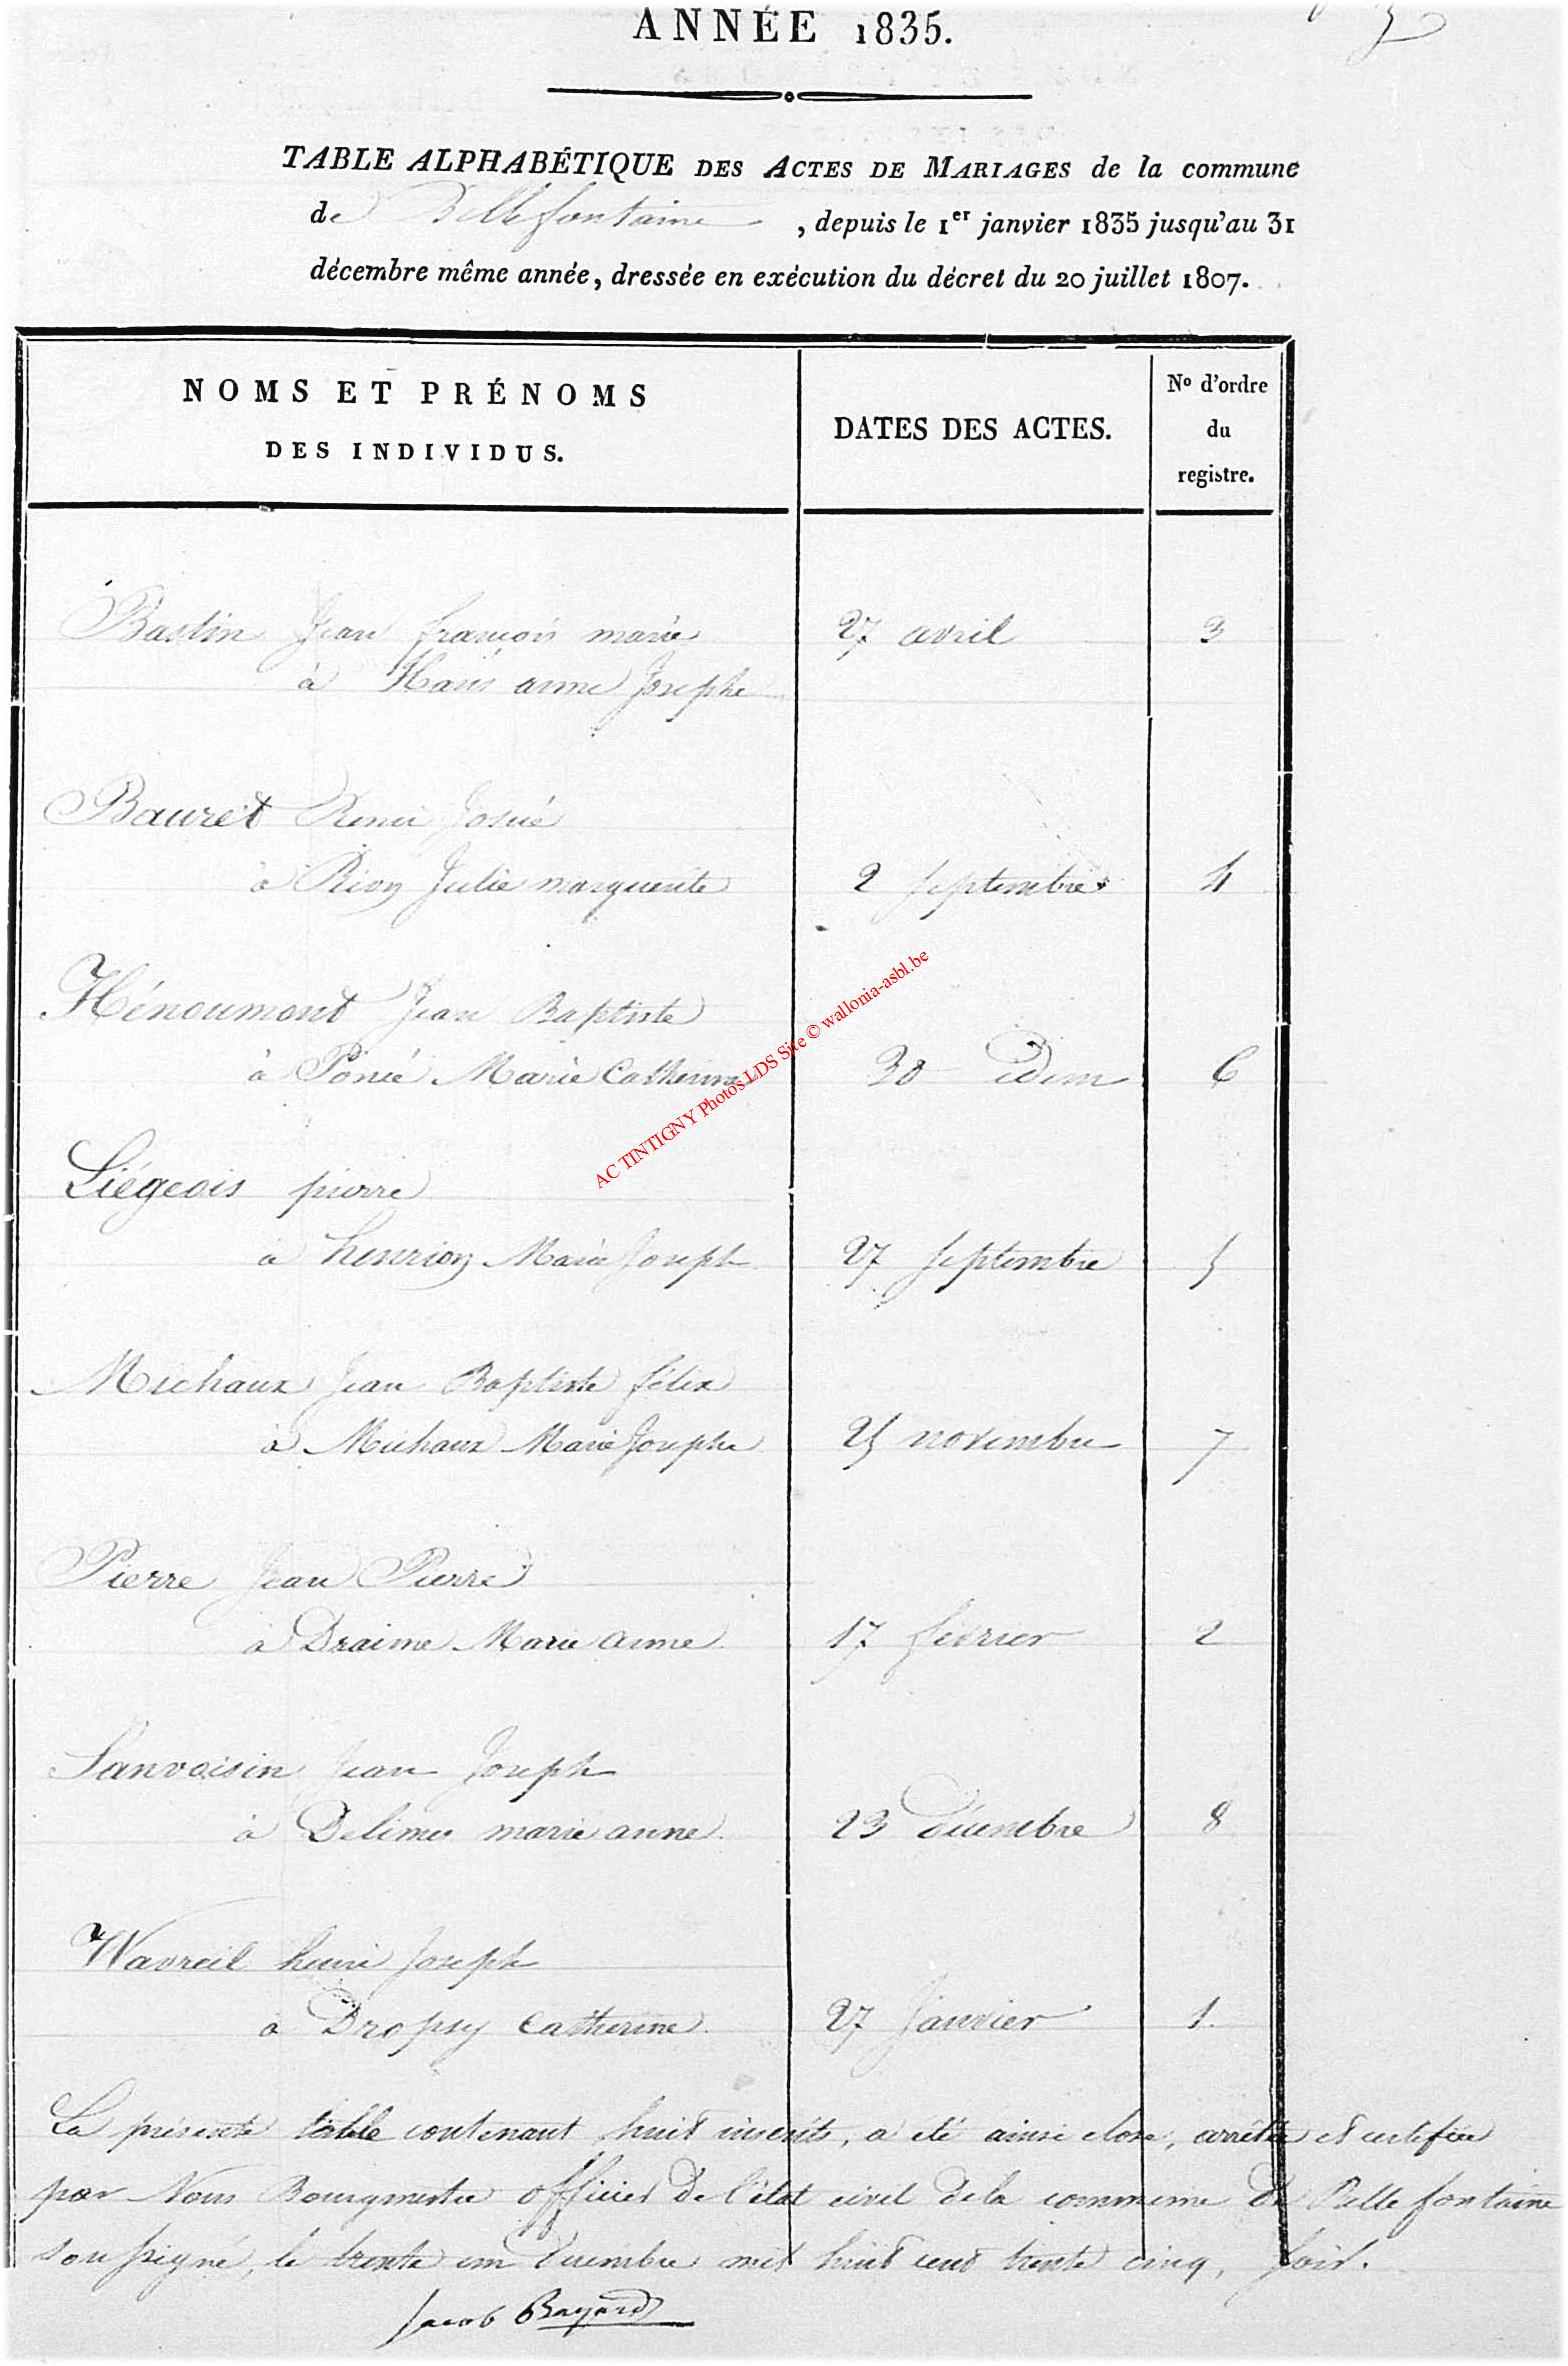 ANNÉE 1835.
TABLE ALPHABÉTIQUE DES ACTES DE MARIAGES de la commune
de Bellefontaine, depuis le 1er janvier 1835 jusqu'au 31
décembre même année, dressée en exécution du décret du 20 juillet 1807.
NOMS ET PRÉNOMS
DES INDIVIDUS.
DATES DES ACTES.
No d'ordre
du
registre.
Bastin Jean françois marie 27 avril 3
à anne Josephe
Bauret Remi Josué
à Rion Julie marguerite 2 septembre 4
Hénoumont Jean Baptiste
à Marie Catherine 30 idem 6
Liégeois pierre
à henrion Marie Joseph 27 septembre 5
Michaux Jean Baptiste félix
à Michaux Marie Josephe 25 novembre 7
Pierre Jean Pierre
à Draime Marie anne 17 février 2
Sanvoisin Jean Joseph
à marie anne 23 décembre 8
Wavreil henri Joseph
à Dropsy Catherine 27 Janvier 1.
La présente table contenant huit inscrits, a été ainsi close, arrêtée et certifiée
par Nous Bourgmestre officier de l'état civil de la commune de Bellefontaine
soussigné, le trente un décembre mil huit cent trente cinq, soir.
Jacob Bayard
AC TINTIGNY Photos LDS Site © wallonia-asbl.be